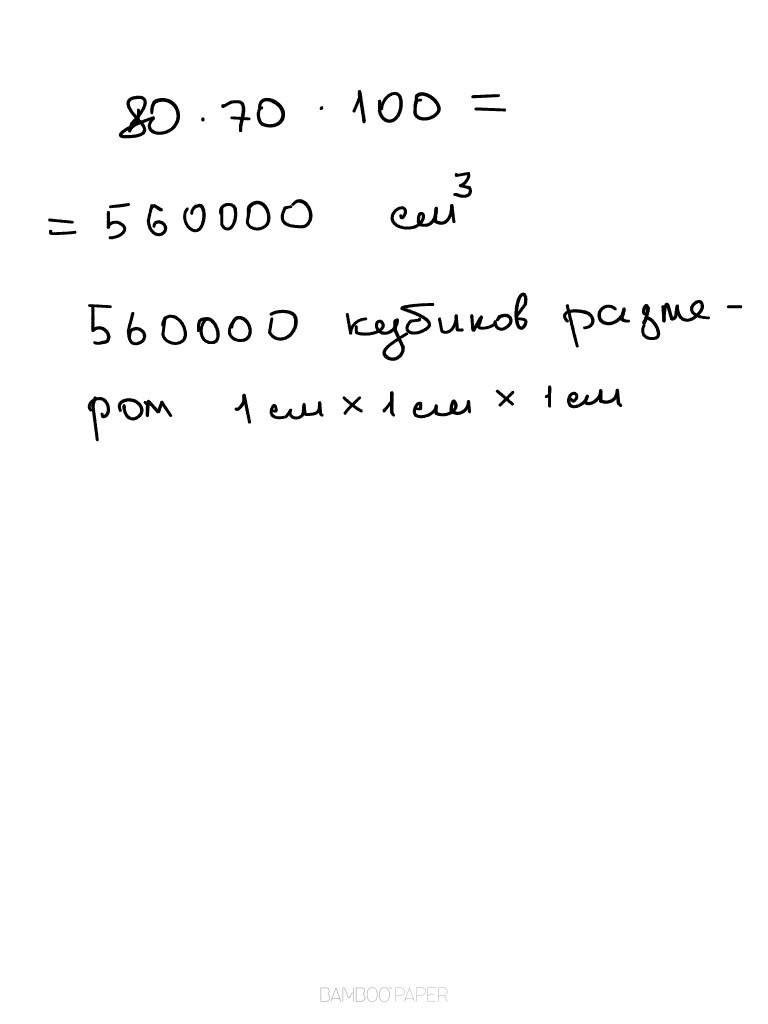 80 · 70 · 100 =
= 560000 см³
560000 кубиков разме-
ром 1 см × 1 см × 1 см
BAMBOO PAPER